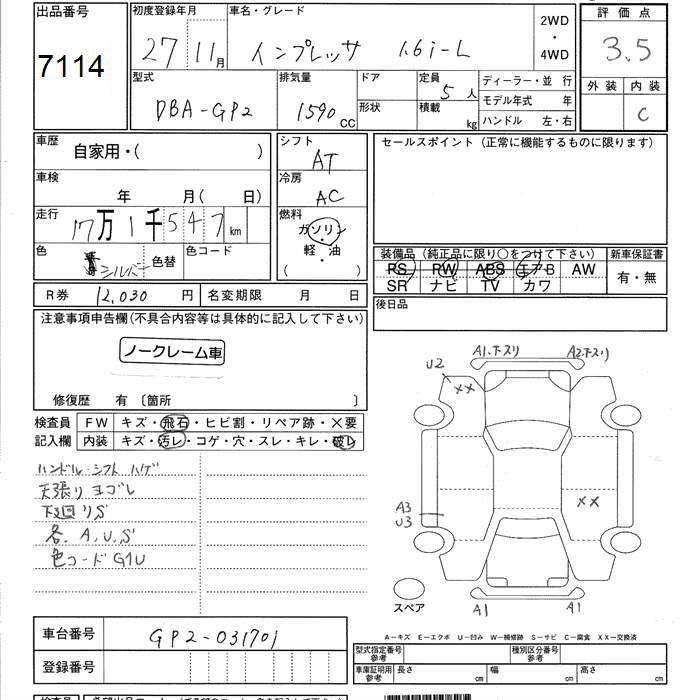 出品番号
7114
初度登録年月
27 11月
車名・グレード
インプレッサ 1.6i-L
2WD
・
4WD
評価点
3.5
外装 内装
C
型式
DBA-GP2
排気量
1590 CC
ドア
形状
定員
5 人
積載
kg
ディーラー・並 行
モデル年式 年
ハンドル 左・右
車歴
自家用・( )
車検
年 月( 日)
走行
17万1千547km
色
シルバー
色替
色コード
シフト
AT
冷房
AC
燃料
ガソリン
軽・油
( ・ )
セールスポイント (正常に機能するものに限ります)
装備品 (純正品に限り○をつけて下さい)
PS PW ABS エアB AW
SR ナビ TV カワ
新車保証書
有・無
R券 12,030 円
名変期限 月 日
後日品
注意事項申告欄(不具合内容等は具体的に記入して下さい)
ノークレーム車
修復歴 有 〔箇所 〕
検査員
記入欄
FW キズ・飛石・ヒビ割・リペア跡・×要
内装 キズ・汚レ・コゲ・穴・スレ・キレ・破レ
ハンドル・シフト ハゲ
天張リ ヨゴレ
下廻リS
各.A.U.S
色コード G1U
A1.下スリ
A2.下スリ
U2
××
××
A3
U3
A1
A1
スペア
A-キズ E-エクボ U-凹み W-補修跡 S-サビ C-腐食 XX-交換済
車台番号
GP2-031701
登録番号
型式指定番号
参考
種別区分番号
参考
車庫証明用
参考
長さ cm
幅 cm
高さ cm